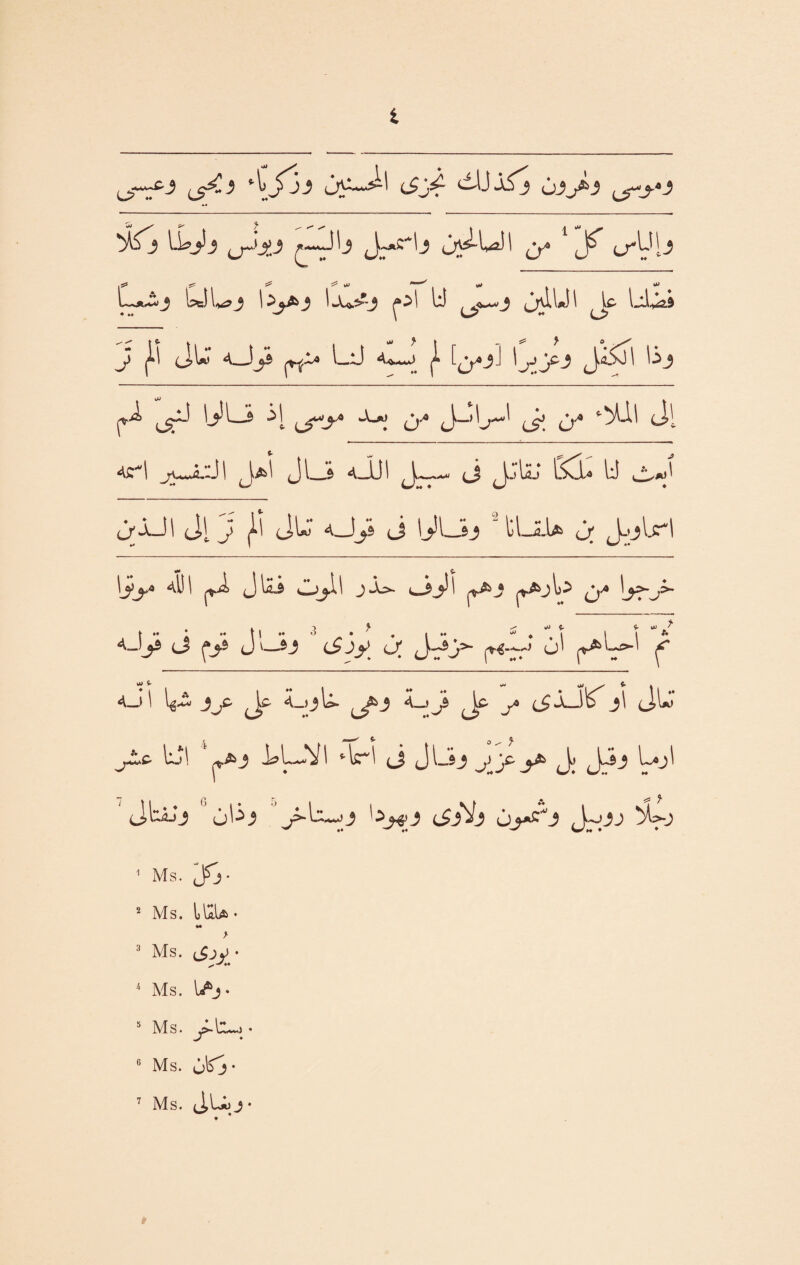 ٤
وموسى وهرون وكذلك نجزى المحسنين وزكرياء ويحيى وعيسى
وإلياس كلّ ¹ من الصالحين واسمعيل واليسع ويونس ولوطا وكلّا
فضّلنا على العالمين وسمّى لنا آدم ومحمّدا وهودا وصالحا وشعيبا
وذا الكفل وعزيرا [ومن] لم يسمّه لنا منهم قوله تعالى ألم تر
إلى الملإ من بنى إسرائيل من بعد موسى إذ قالوا لنبىّ لهم
ابعث لنا ملكا نقاتل فى سبيل الله قال أهل التفسير اسمه
اسمعويل بن هلقانا ² وقالوا فى قوله تعالى ألم تر إلى الذين
خرجوا من ديارهم وهم ألوف حذر الموت فقال لهم الله موتوا
ثمّ أحياهم أن نبيهم حزقيل بن بوزى ³ وقال قوم فى قوله
تعالى أو كالذى مر على قرية وهى خاوية على عروشها أنّه
ارميا وقيل بل هو عزير وقال فى أسماء الأسباط وهم ⁴ اثنا عشر
رجلا روبيل وشمعون ولاوى ويهودا ويستاخر ⁵ وذان ⁶ ونفتالى ⁷
¹ Ms. وكلّ.
² Ms. هلقايا.
³ Ms. يورى.
⁴ Ms. وهما.
⁵ Ms. بستاخر.
⁶ Ms. وكان.
⁷ Ms. وبغالى.